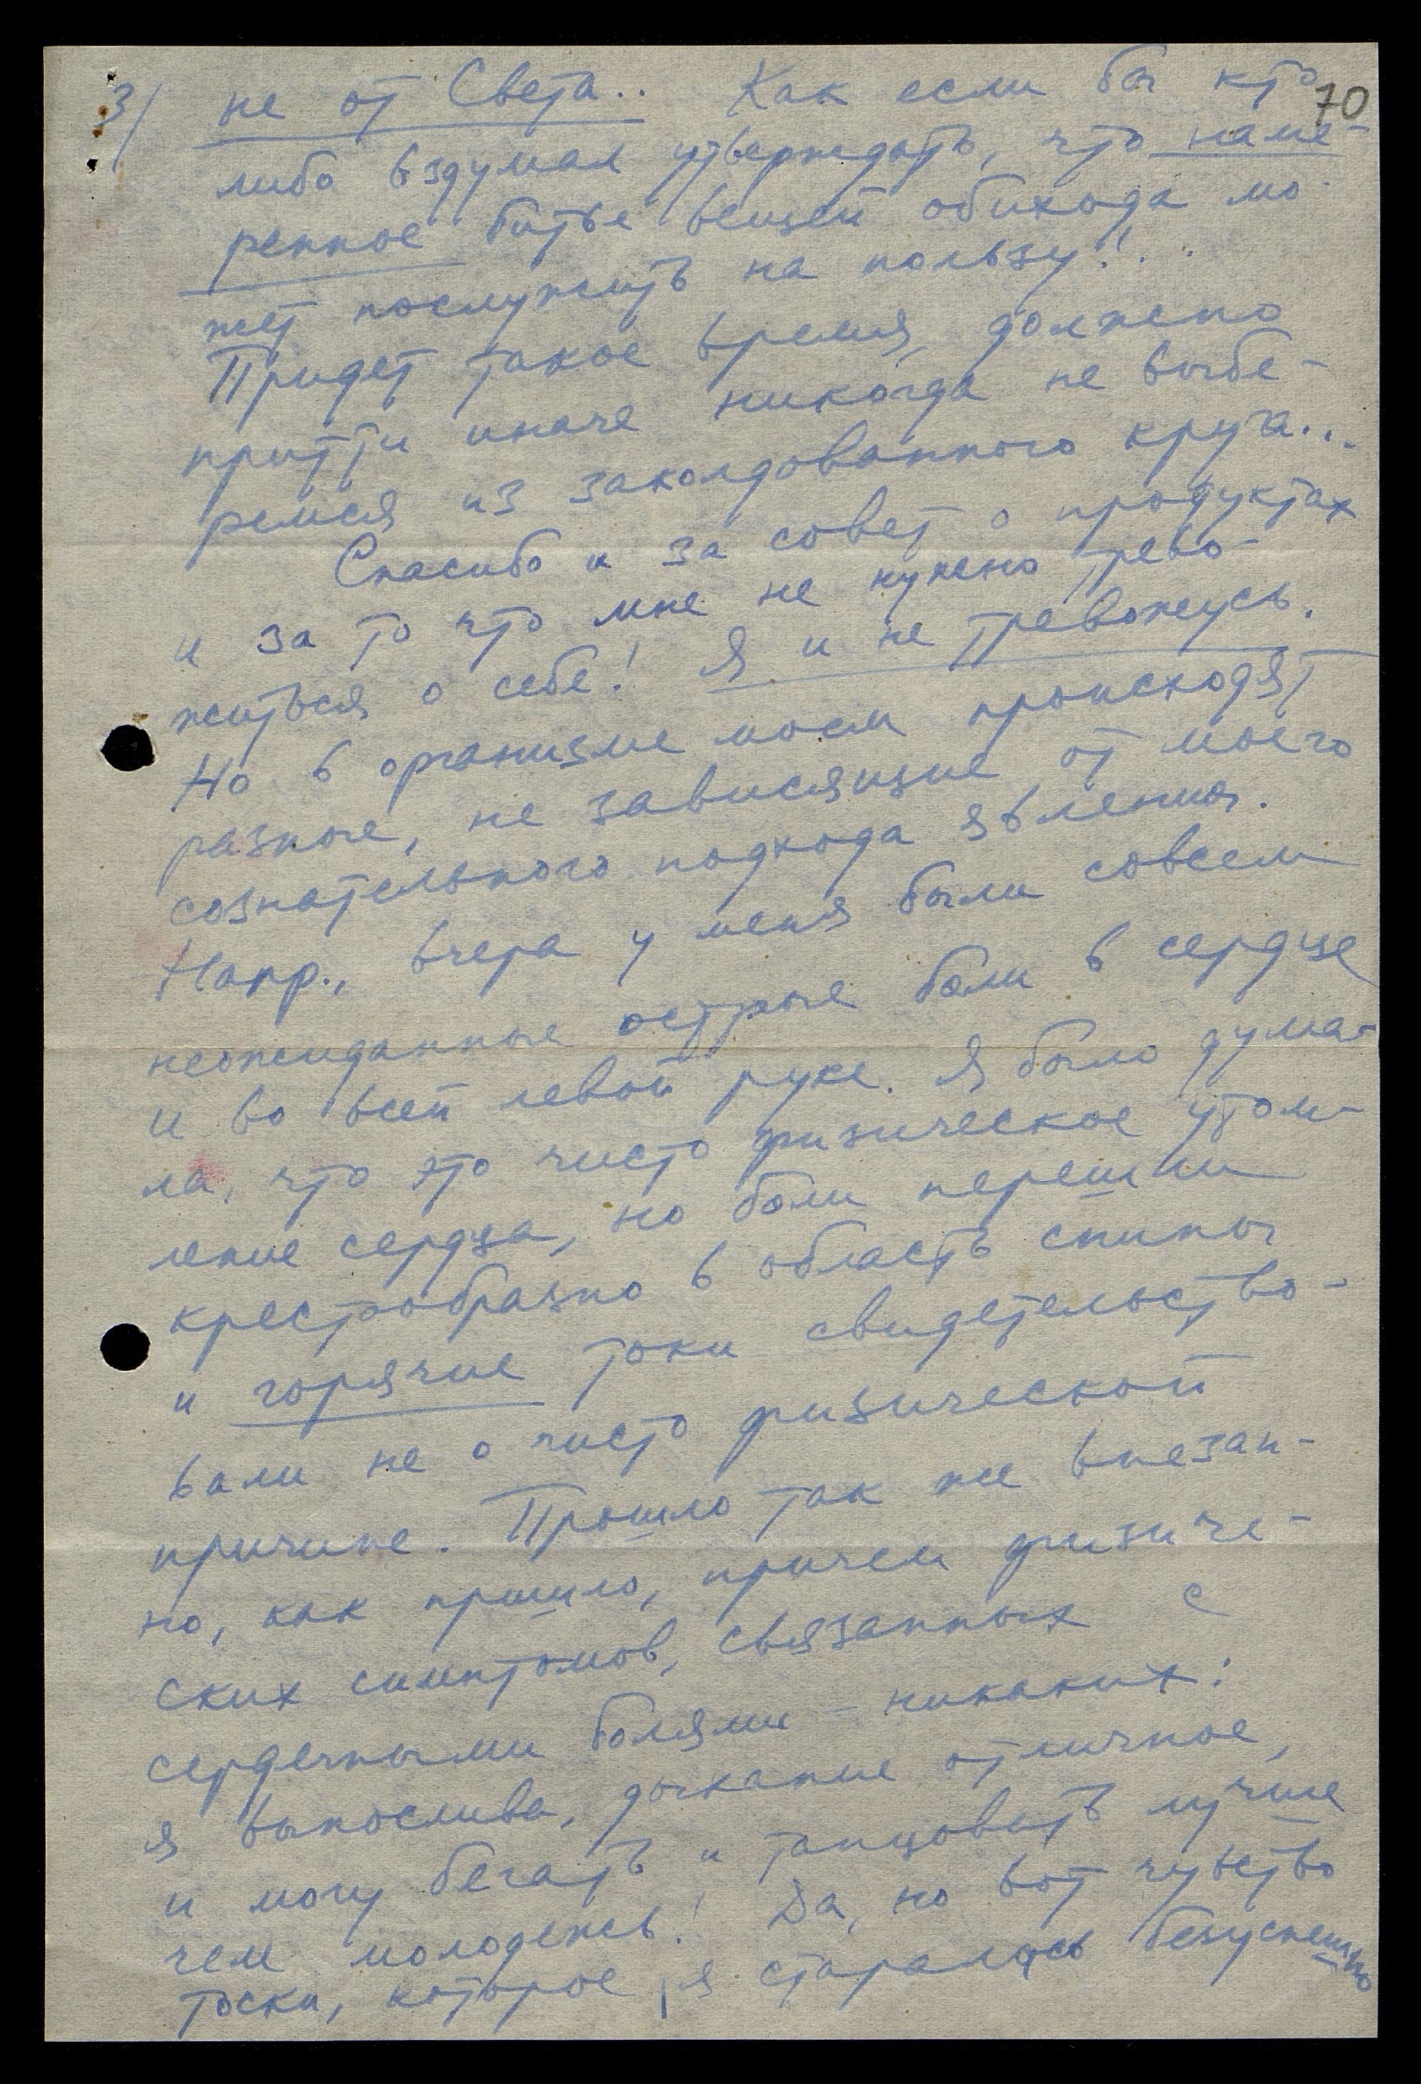 70
3/ не от Света.. Как если бы кто
либо вздумал утверждать, что наме-
ренное битье вещей обихода мо-
жет послужить на пользу!..
Придет такое время, должно
притти иначе никогда не выбе-
ремся из заколдованного круга...
Спасибо и за совет о продуктах
и за то что мне не нужно трево-
житься о себе! Я и не тревожусь.
Но в организме моем происходят
разные, не зависящие от моего
сознательного подхода явления.
Напр., вчера у меня были совсем
неожиданные острые боли в сердце
и во всей левой руке. Я было дума-
ла, что это чисто физическое утом-
ление сердца, но боли перешли
крестообразно в область спины
и горячие токи свидетельство-
вали не о чисто физической
причине. Прошло так же внезап-
но, как пришло, причем физиче-
ских симптомов, связанных с
сердечными болями – никаких:
я вынослива, дыхание отличное,
и могу бегать и танцовать лучше
чем молодежь! Да, но вот чувство
тоски, которое я старалась безуспешно